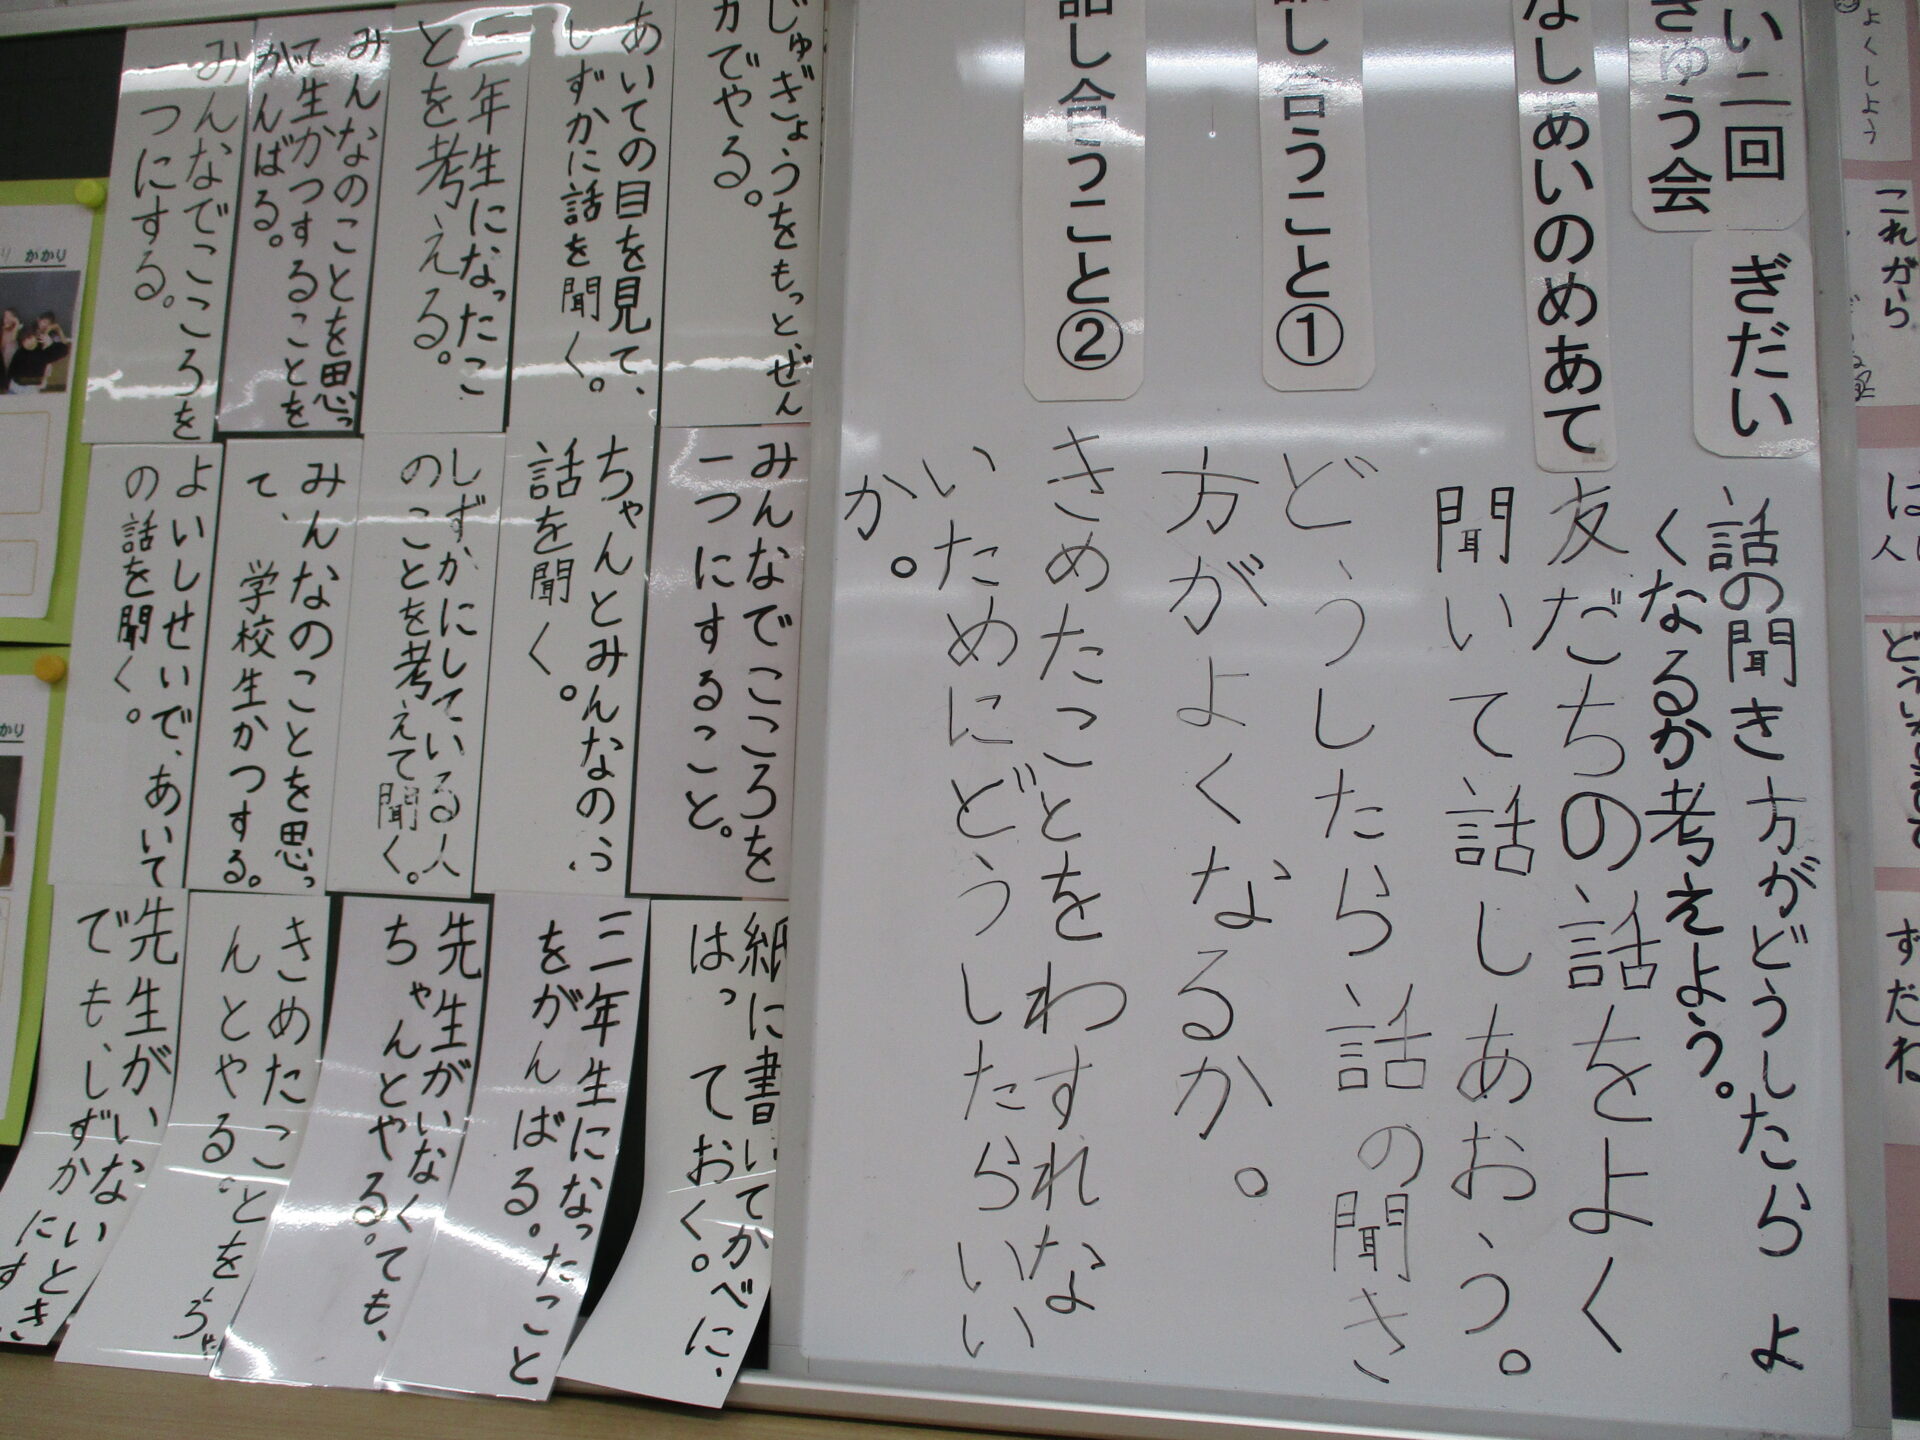 い二回
きゅう会
ぎだい
話の聞き方がどうしたらよ
くなるか考えよう。
なしあいのめあて
友だちの話をよく
聞いて話しあおう。
話し合うこと①
どうしたら話の聞き
方がよくなるか。
話し合うこと②
きめたことをわすれな
いためにどうしたらいい
か。
じゅぎょうをもっと、ぜん
力でやる。
あいての目を見て、
しずかに話を聞く。
三年生になったこ
とを考える。
みんなのことを思っ
て生かつすることを
がんばる。
みんなでこころを
一つにする。
みんなでこころを
一つにすること。
ちゃんとみんなのう
話を聞く。
しずかにしている人
のことを考えて聞く。
みんなのことを思っ
て、学校生かつする。
よいしせいで、あいて
の話を聞く。
紙に書いてかべに、
はっておく。
三年生になったこと
をがんばる。
先生がいなくても、
ちゃんとやる。
きめたことをちゃ
んとやる。
先生が、いないとき
でも、しずかにす
よくしよう
これから
ずだね
がかり
かり